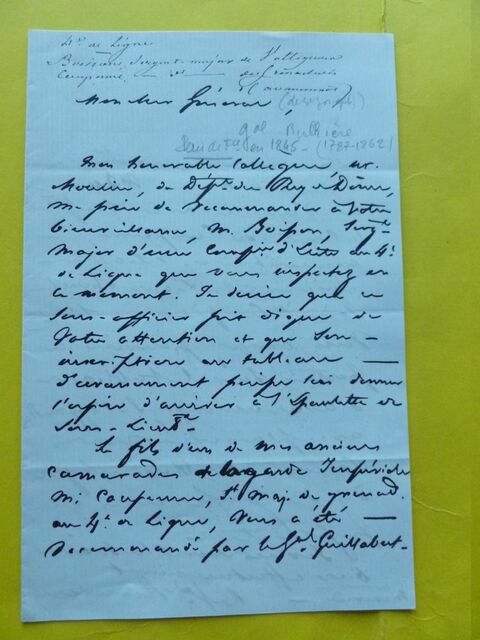 4e de Ligne
Boisson, Sergent-major de Voltigeurs
Coupenne — d° — de Grenadiers
Mon cher Général,
gal Rulhière
Pair de Fce en 1845 - (1787-1862)
Mon honorable Collègue Mr.
Moulin, du Dépt. du Puy de Dôme,
me prie de recommander à votre
bienveillance, M. Boisson, Sergt
Major d'une Compie d'Elite au 4e
de Ligne que vous inspectez en
ce moment. Je désire que ce
Sous-officier soit digne de
votre attention et que son
inscription au tableau —
d'avancement puisse lui donner
l'espoir d'arriver à l'Epaulette de
Sous-Lieut.
Le fils d'un de mes anciens
camarades de la garde Impériale
Mr Coupenne, St Maj. de grenad.
au 4e de Ligne, vous a été —
recommandé par le Gal Guillabert.